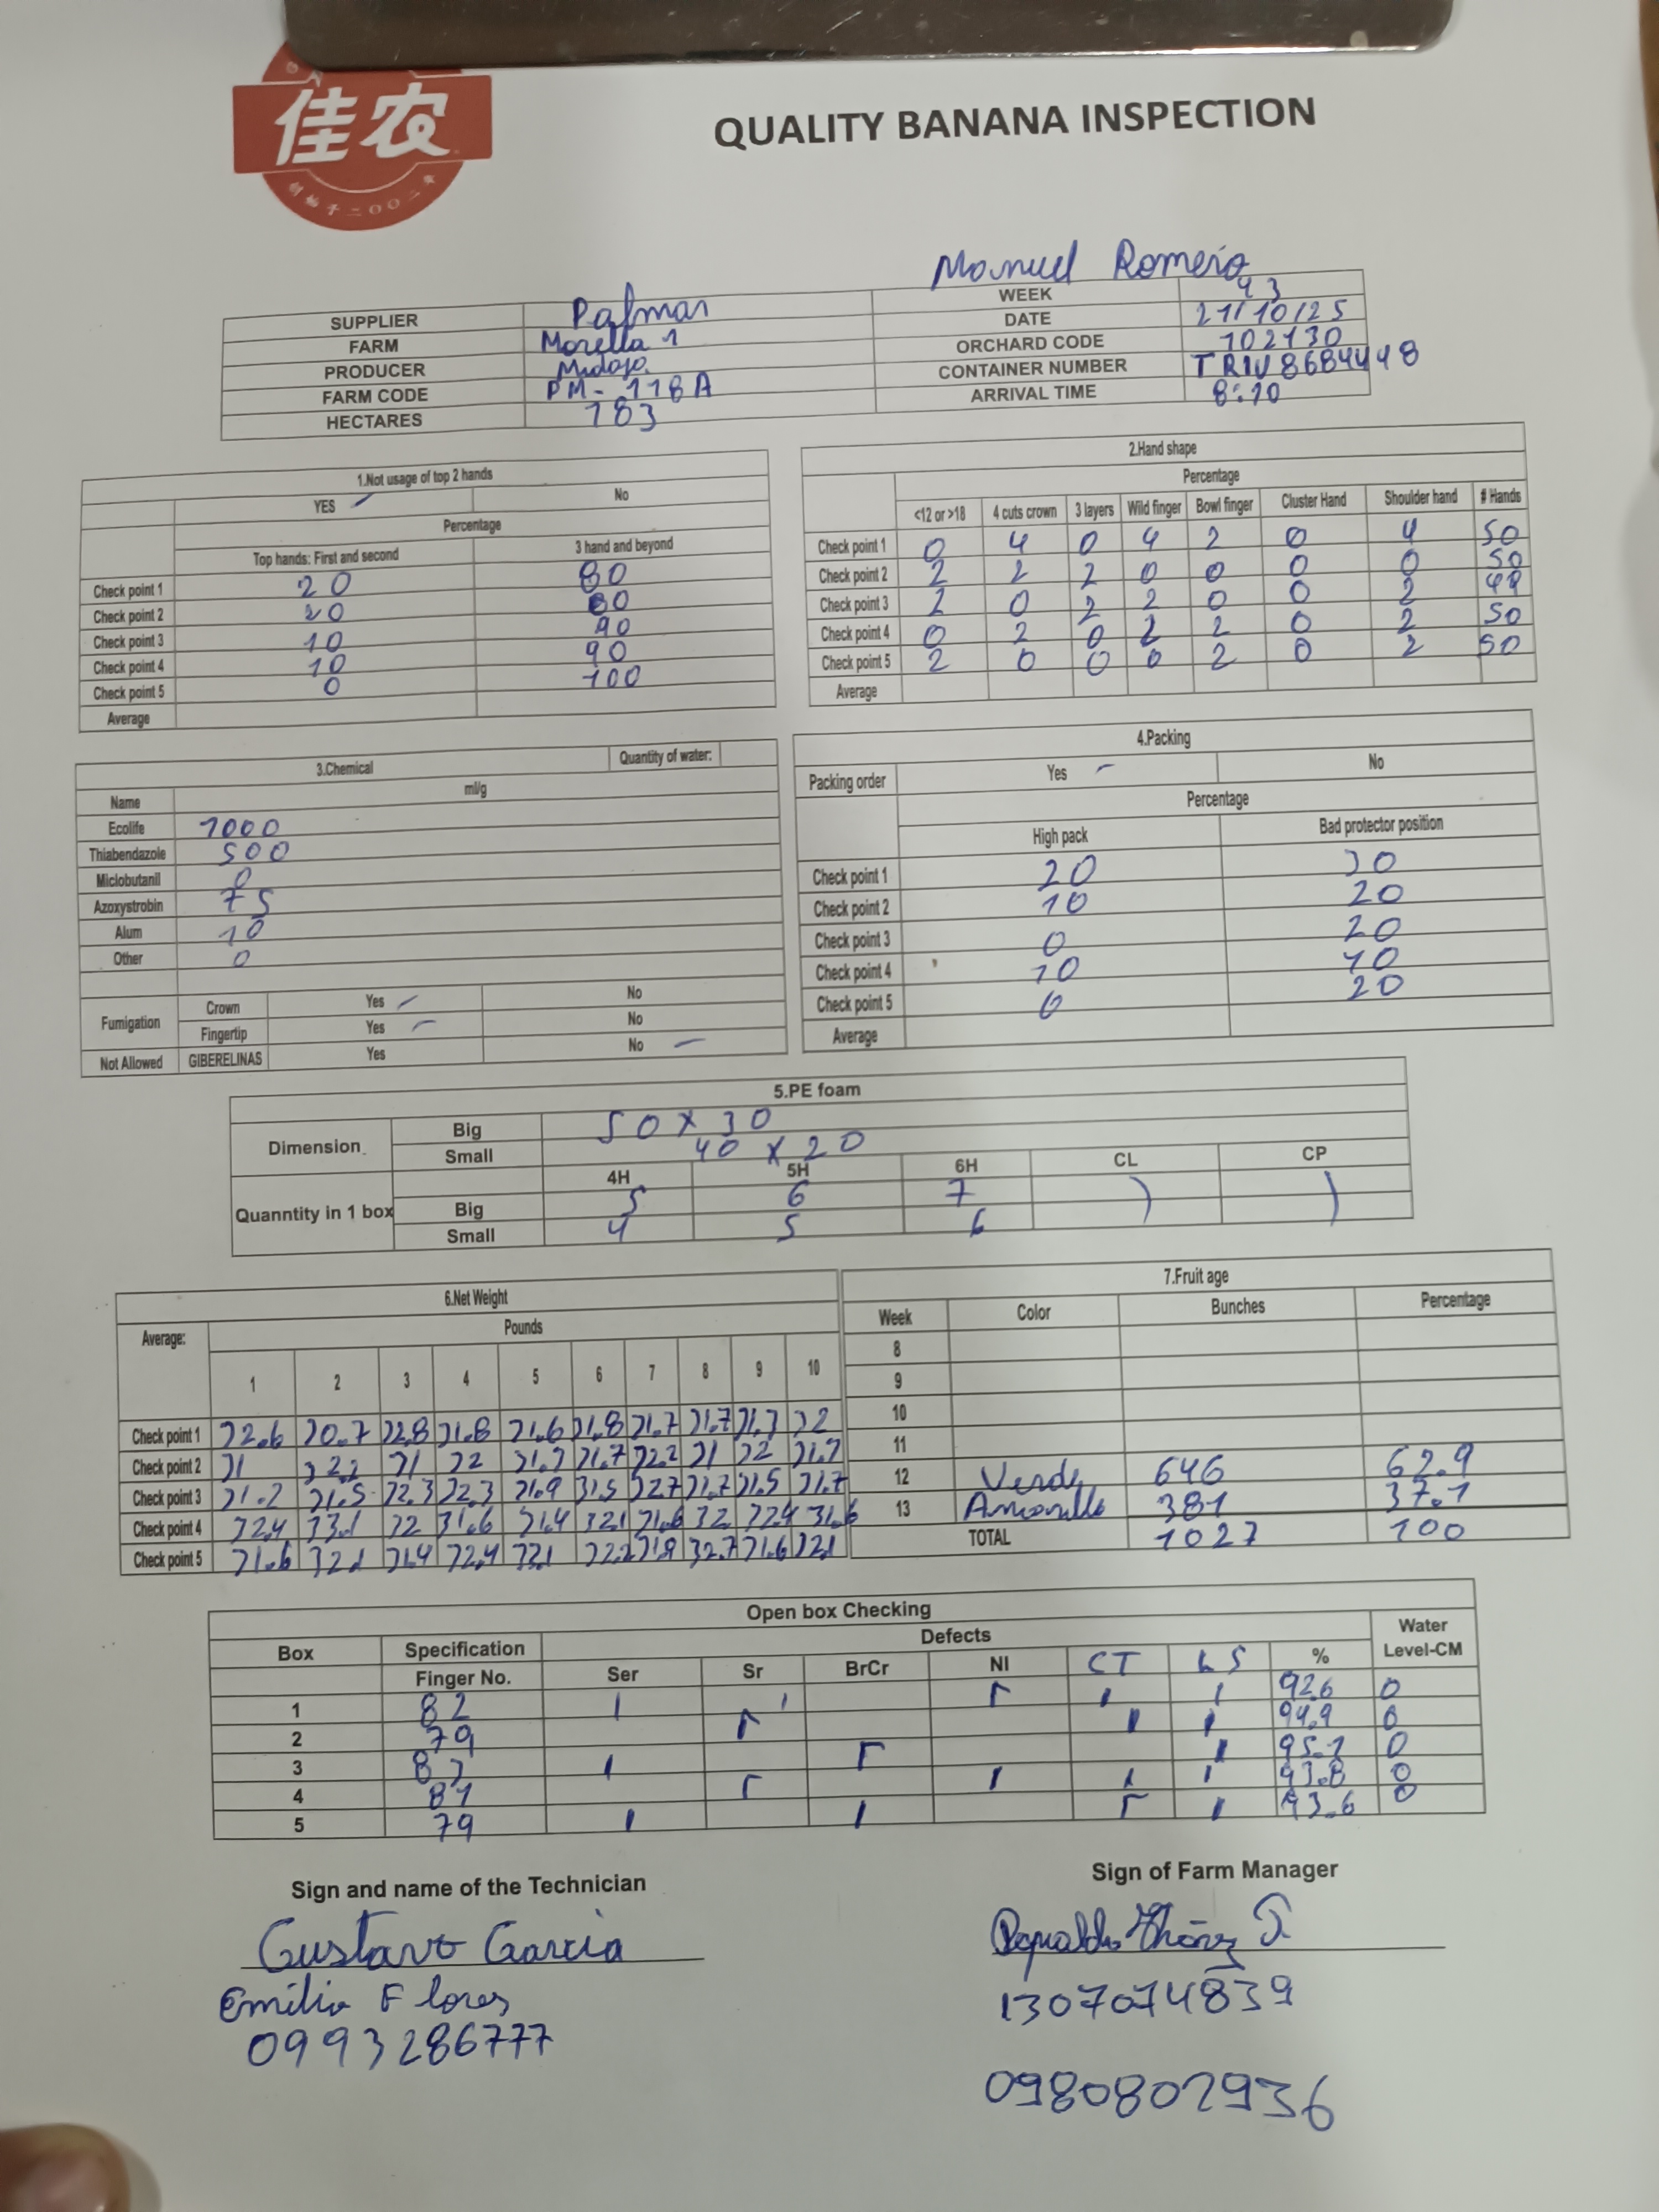 佳农
创始于二〇〇二年
QUALITY BANANA INSPECTION
Manuel Romero
SUPPLIER Palmar WEEK 43
FARM Morella 1 DATE 21/10/25
PRODUCER ORCHARD CODE 102130
FARM CODE PM-118A CONTAINER NUMBER TRIU8684448
HECTARES 183 ARRIVAL TIME 8:10
1.Not usage of top 2 hands
YES No
Percentage
Top hands: First and second 3 hand and beyond
Check point 1 20 80
Check point 2 20 80
Check point 3 10 90
Check point 4 10 90
Check point 5 0 100
Average
2.Hand shape
Percentage
<12 or >18 4 cuts crown 3 layers Wild finger Bowl finger Cluster Hand Shoulder hand # Hands
Check point 1 0 4 0 4 2 0 4 50
Check point 2 2 2 2 0 0 0 0 50
Check point 3 2 0 2 2 0 0 2 49
Check point 4 0 2 0 2 2 0 2 50
Check point 5 2 0 0 0 2 0 2 50
Average
3.Chemical Quantity of water:
Name ml/g
Ecolife 1000
Thiabendazole 500
Miclobutanil 0
Azoxystrobin 75
Alum 10
Other 0
Fumigation Crown Yes No
Fingertip Yes No
Not Allowed GIBERELINAS Yes No
4.Packing
Packing order Yes No
Percentage
High pack Bad protector position
Check point 1 20 30
Check point 2 10 20
Check point 3 0 20
Check point 4 10 10
Check point 5 0 20
Average
5.PE foam
Dimension Big 50 x 30
Small 40 x 20
4H 5H 6H CL CP
Quanntity in 1 box Big 5 6 7
Small 4 5 6
6.Net Weight
Average: Pounds
1 2 3 4 5 6 7 8 9 10
Check point 1 32.6 30.7 32.8 31.8 31.6 31.8 31.7 31.7 31.3 32
Check point 2 31 32.2 31 32 31.7 32.2 31 32 31.7
Check point 3 31.2 31.5 32.3 32.3 31.9 31.5 32.7 31.7 31.5 31.7
Check point 4 32.4 33.1 32 31.6 31.4 32.1 31.6 32 32.4 31.6
Check point 5 31.6 32.1 31.4 32.4 33.1 32.2 31.9 32.7 31.6 32.1
7.Fruit age
Week Color Bunches Percentage
8
9
10
11
12 Verde 646 62.9
13 Amarillo 381 37.1
TOTAL 1027 100
Open box Checking
Box Specification Defects Water Level-CM
Finger No. Ser Sr BrCr NI CT LS %
1 82 92.6 0
2 79 94.9 0
3 83 95.2 0
4 81 93.8 0
5 79 93.6 0
Sign and name of the Technician
Gustavo Garcia
Emilio Flores
0993286777
Sign of Farm Manager
1307074839
0980802936